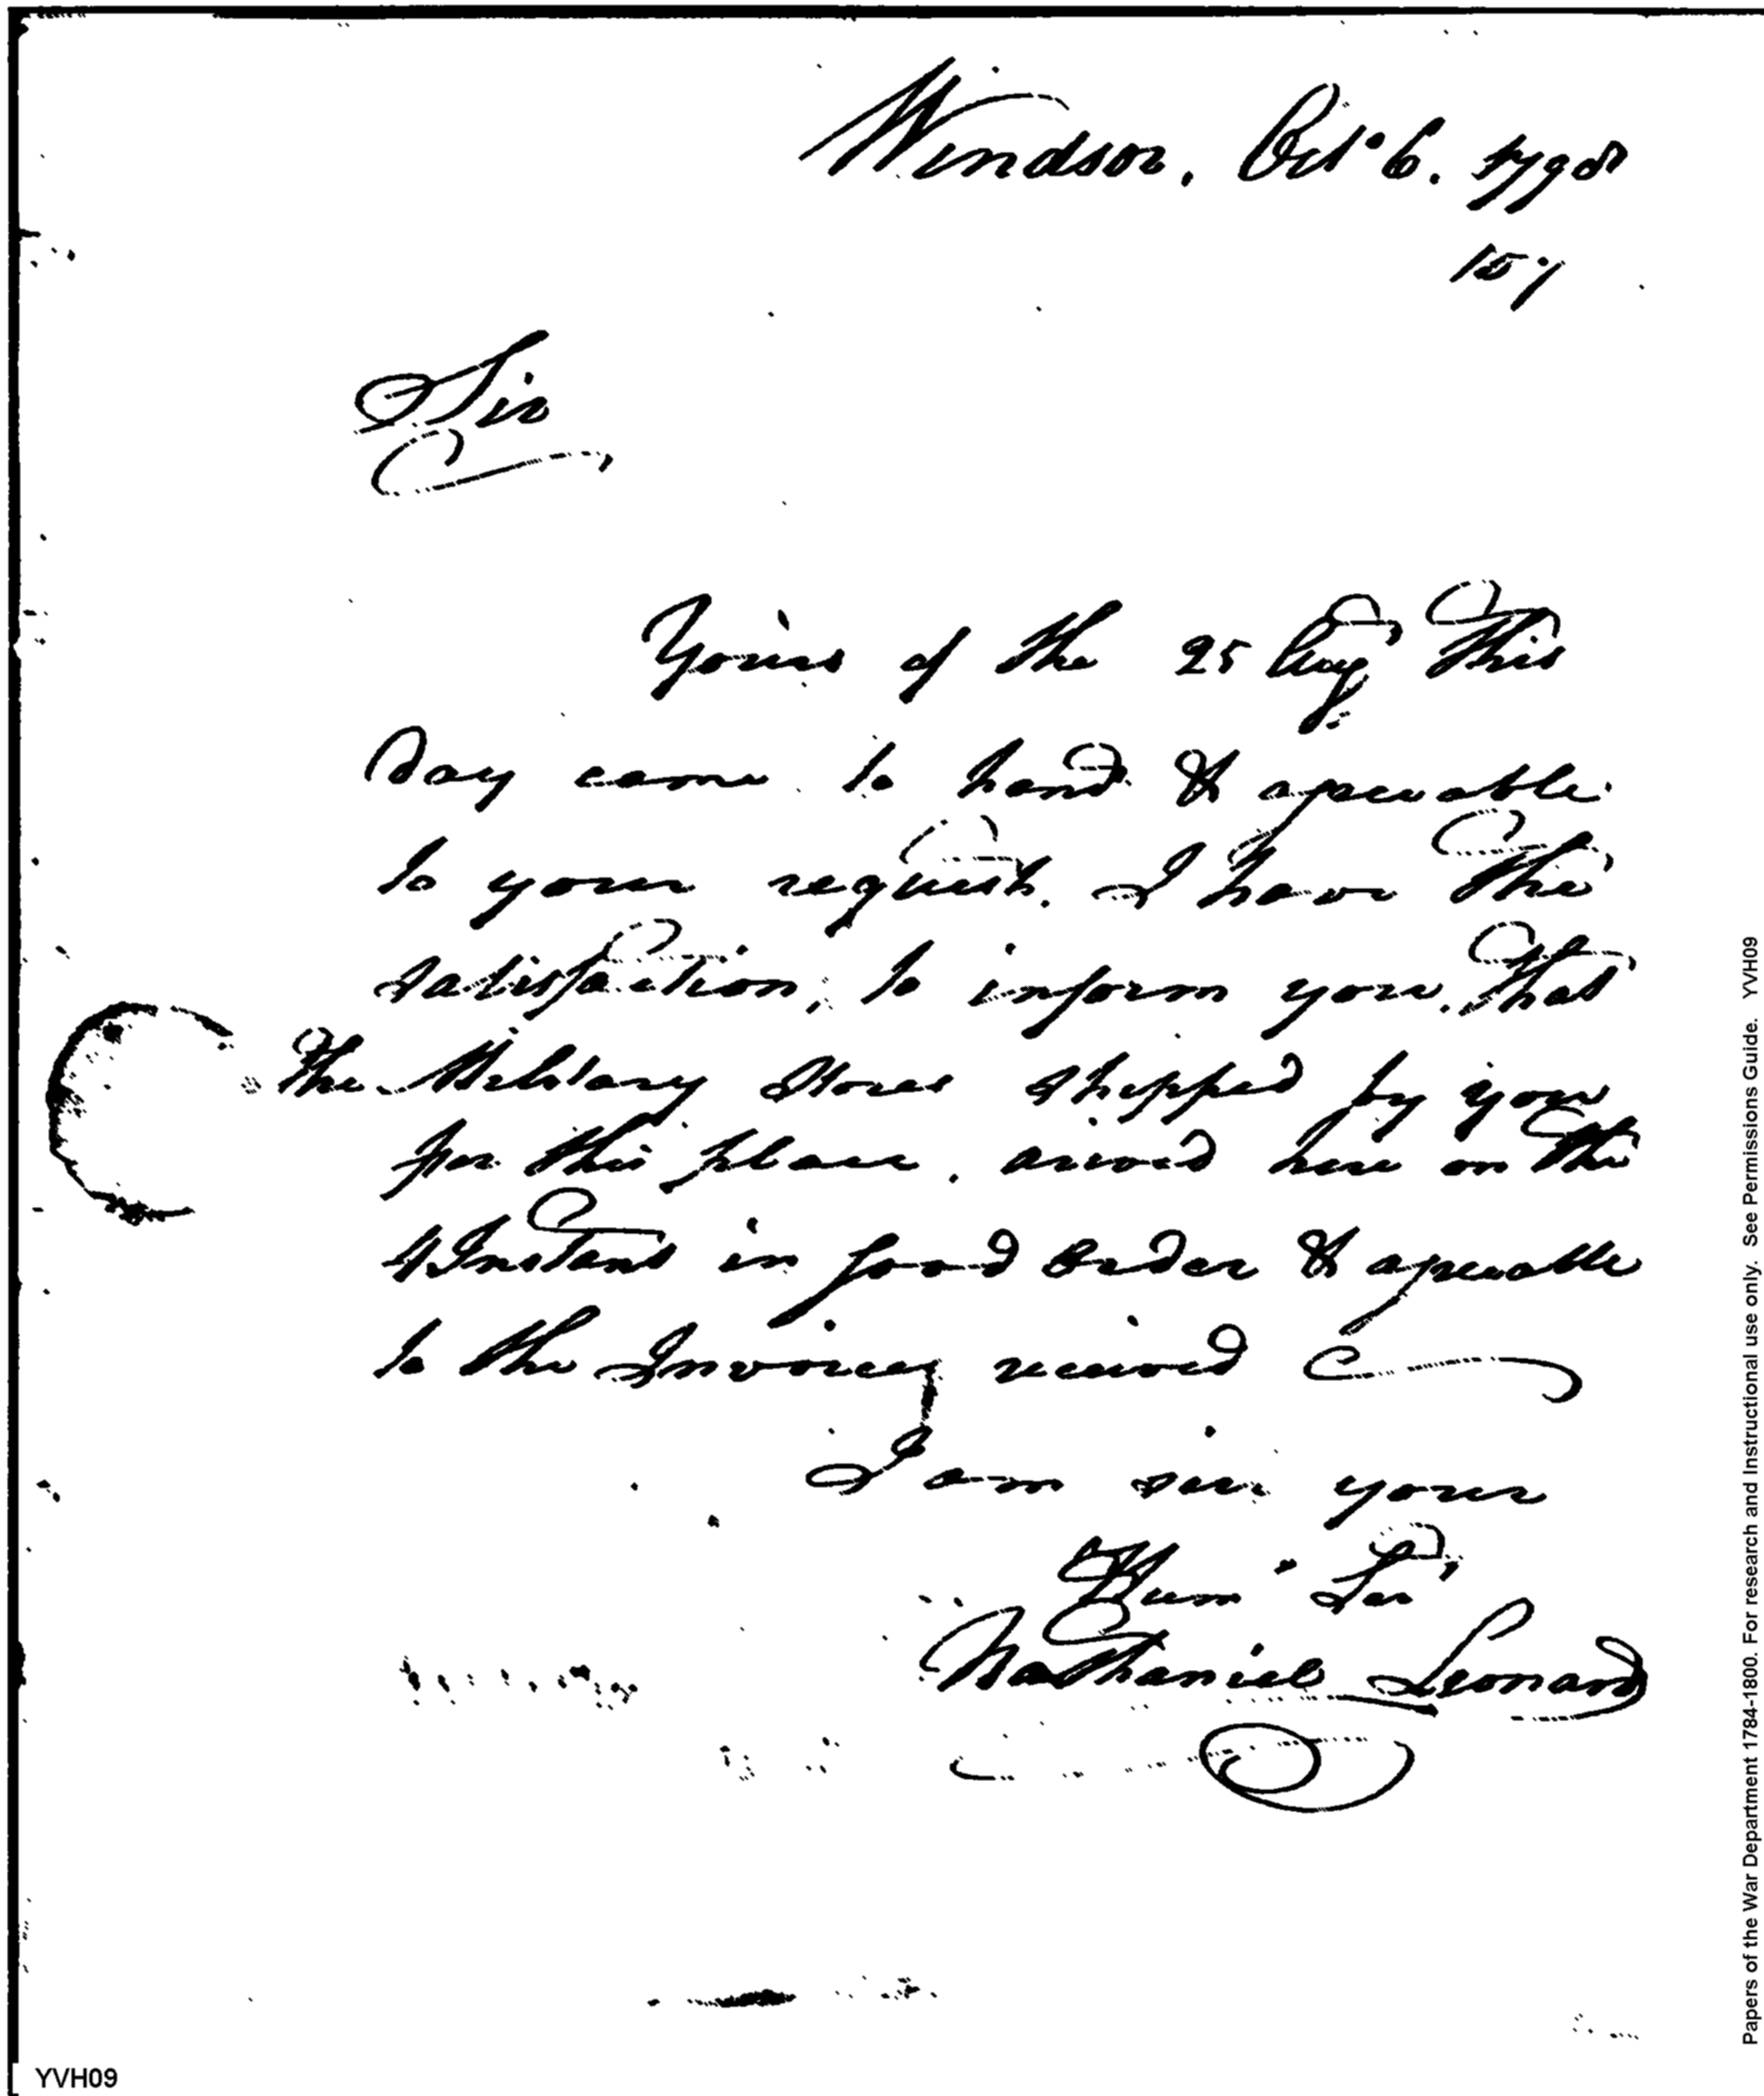 Windsor, Oct 6. 1798
Sir
Yours of the 25 Aug This
day came to hand & agreeable
to your request. I have The
satisfaction, to inform you, That
The Military Stores shipped by you
for this place, arived here on The
Instant in good Order & agreeable
to the Invoices received
I am sir your
Hum Ser
Nathaniel Leonard
YVH09
Papers of the War Department 1784-1800. For research and Instructional use only. See Permissions Guide. YVH09